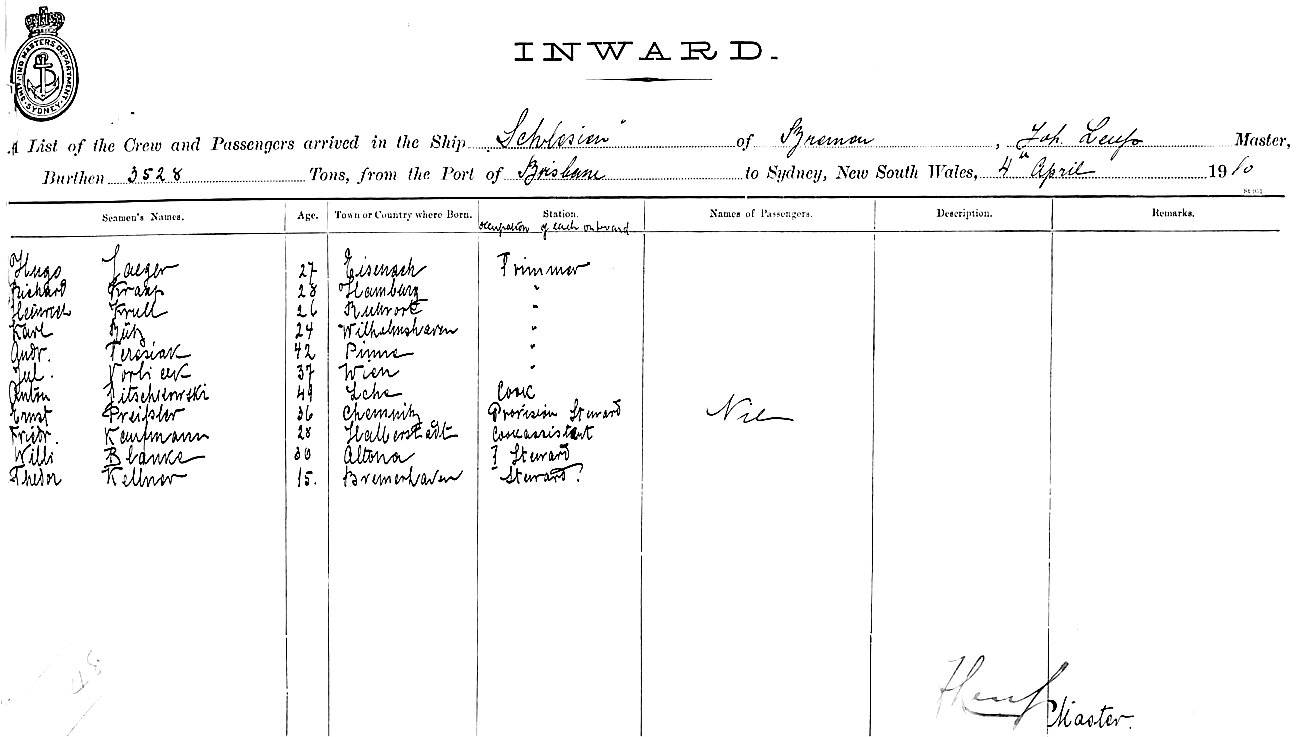 SHIPPING MASTERS DEPARTMENT SYDNEY
INWARD.
A List of the Crew and Passengers arrived in the Ship "Schlesien" of Bremen, Joh. Master,
Burthen 3528 Tons, from the Port of Brisbane to Sydney, New South Wales, 4th April 1910
Seamen's Names. Age. Town or Country where Born. Station. Names of Passengers. Description. Remarks.
occupation of each onboard
Hugo Jaeger 27 Eisenach Trimmer
Richard Kraap 28 Hamburg "
Heinrich Krull 26 Ruhrort "
Karl Bütz 24 Wilhelmshaven "
Andr. Teresiak 42 Pinne "
Jul. 37 Wien "
Anton 49 Lehe Cook
Ernst Preißler 36 Chemnitz Provision Steward Nil
Friedr. Kaufmann 28 Halberstadt Cookassistant
Willi Blanke 30 Altona I Steward
Thedor Kellner 15. Bremerhaven Steward.
Master.